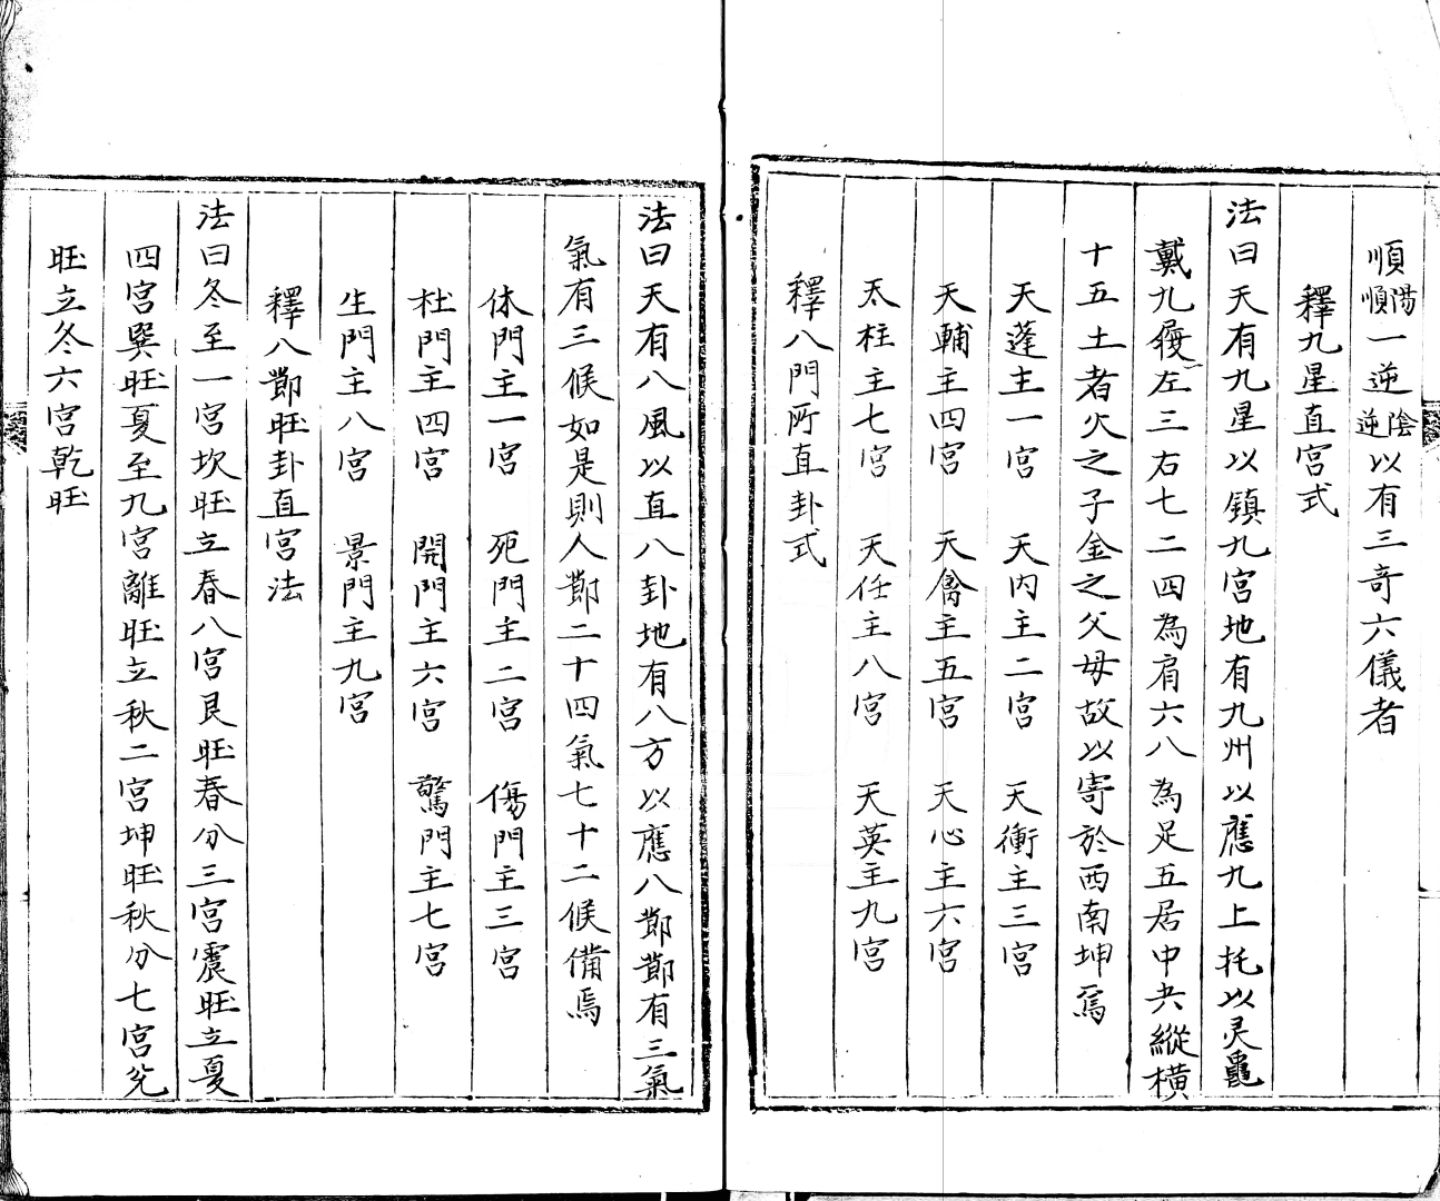 順陽順一逆陰逆以有三奇六儀者
釋九星直宮式
法曰天有九星以鎮九宮地有九州以應九上托以灵龜
戴九履一左三右七二四為肩六八為足五居中央縱橫
十五土者火之子金之父母故以寄於西南坤焉
天蓬主一宮　天內主二宮　天衝主三宮
天輔主四宮　天禽主五宮　天心主六宮
天柱主七宮　天任主八宮　天英主九宮
釋八門所直卦式
法曰天有八風以直八卦地有八方以應八節節有三氣
氣有三候如是則人節二十四氣七十二候備焉
休門主一宮　死門主二宮　傷門主三宮
杜門主四宮　開門主六宮　驚門主七宮
生門主八宮　景門主九宮
釋八節旺卦直宮法
法曰冬至一宮坎旺立春八宮艮旺春分三宮震旺立夏
四宮巽旺夏至九宮離旺立秋二宮坤旺秋分七宮兌
旺立冬六宮乾旺